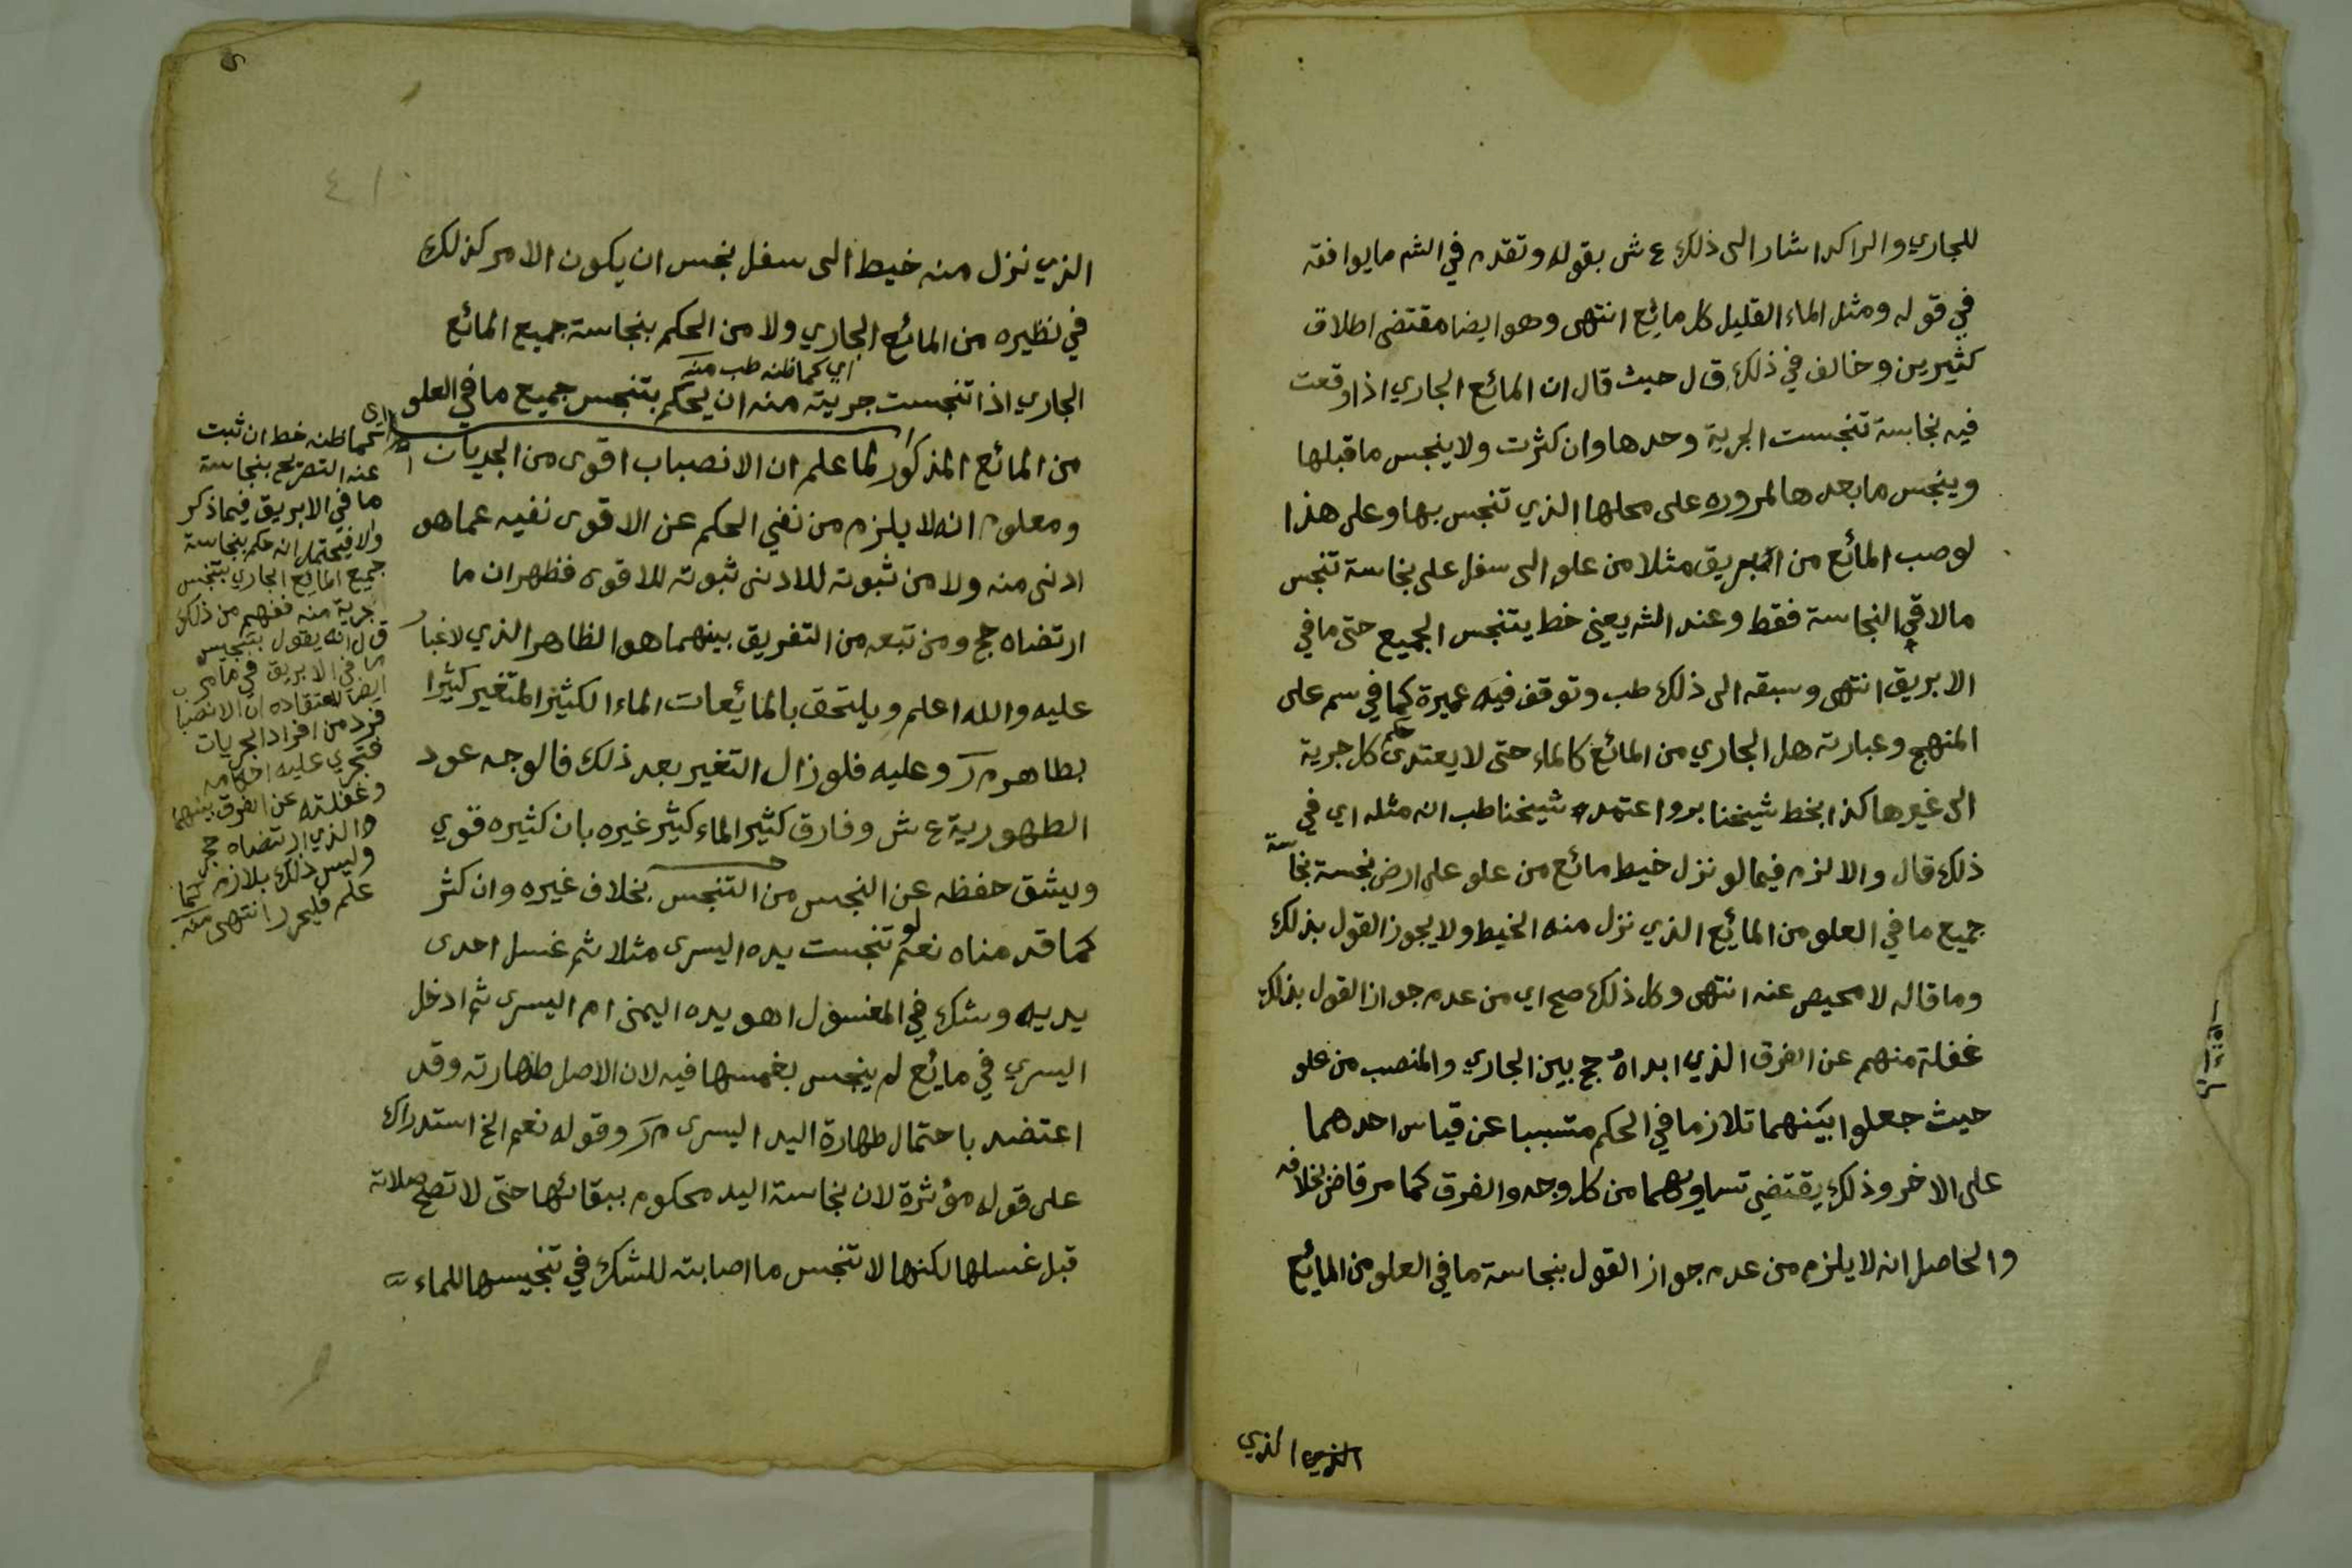 للجاري والراكد اشار الى ذلك ع ش بقوله وتقدم في الشم ما يوافقه
في قوله ومثل الماء القليل كل مائع انتهى وهو ايضا مقتضى اطلاق
كثيرين وخالف في ذلك ق ل حيث قال ان المائع الجاري اذا وقعت
فيه نجاسة تنجست الجرية وحدها وان كثرت ولا ينجس ما قبلها
وينجس ما بعدها لمروره على محلها الذي تنجس بها وعلى هذا
لو صب المائع من ابريق مثلا من علو الى سفل على نجاسة تنجس
ما لاقي النجاسة فقط وعند الشم يعني خط يتنجس الجميع حتى ما في
الابريق انتهى وسبقه الى ذلك طب وتوقف فيه عميرة كما في سم على
المنهج وعبارته هل الجاري من المائع كالماء حتى لا يعتدى حكم كل جرية
الى غيرها كذا بخط شيخنا بر واعتمد شيخنا طب انه مثله اي في
ذلك قال والا لزم فيما لو نزل خيط مائع من علو على ارض نجسة نجاسة
جميع ما في العلو من المائع الذي نزل منه الخيط ولا يجوز القول بذلك
وما قاله لا محيص عنه انتهى وكل ذلك صح اي من عدم جواز القول بذلك
غفلة منهم عن الفرق الذي ابداه حج بين الجاري والمنصب من علو
حيث جعلوا بينهما تلازما في الحكم متسببا عن قياس احدهما
على الاخر وذلك يقتضي تساويهما من كل وجه والفرق كما مر قاض بخلافه
والحاصل انه لا يلزم من عدم جواز القول بنجاسة ما في العلو من المائع
الذي الذي
الذي نزل منه خيط الى سفل نجس ان يكون الامر كذلك
في نظيره من المائع الجاري ولا من الحكم بنجاسة جميع المائع
اي كما ظنه طب منه
الجاري اذا تنجست جرية منه ان يحكم بتنجس جميع ما في العلو
من المائع المذكور لما علم ان الانصباب اقوى من الجريات
ومعلوم انه لا يلزم من نفي الحكم عن الاقوى نفيه عما هو
ادنى منه ولا من ثبوته للادنى ثبوته للاقوى فظهر ان ما
ارتضاه حج ومن تبعه من التفريق بينهما هو الظاهر الذي لا غبار
عليه والله اعلم ويلتحق بالمائعات الماء الكثير المتغير كثيرا
بطاهر م ر وعليه فلو زال التغير بعد ذلك فالوجه عود
الطهورية ع ش وفارق كثير الماء كثير غيره بان كثيره قوي
ويشق حفظه عن النجس من التنجس بخلاف غيره وان كثر
كما قدمناه نعم لو تنجست يده اليسرى مثلا ثم غسل احدى
يديه وشك في المغسول اهو يده اليمنى ام اليسرى ثم ادخل
اليسري في مائع لم ينجس بغمسها فيه لان الاصل طهارته وقد
اعتضد باحتمال طهارة اليد اليسرى م ر وقوله نعم الخ استدراك
على قوله مؤثرة لان نجاسة اليد محكوم ببقائها حتى لا تصح صلاته
قبل غسلها لكنها لا تنجس ما اصابته للشك في تنجيسها للماء
اي
كما ظنه خط ان ثبت
عنه التصريح بنجاسة
ما في الابريق فيما ذكر
والا فيحتمل انه حكم بنجاسة
جميع المائع الجاري بتنجس
جرية منه ففهم من ذلك
ق ل انه يقول بتنجيس
ما في الابريق في ما مر
ايضا لاعتقاده ان الانصباب
فرد من افراد الجريات
فتجري عليه احكامه
وغفلته عن الفرق بينهما
والذي ارتضاه حج
وليس ذلك بلازم كما
علم فليحرر انتهى منه